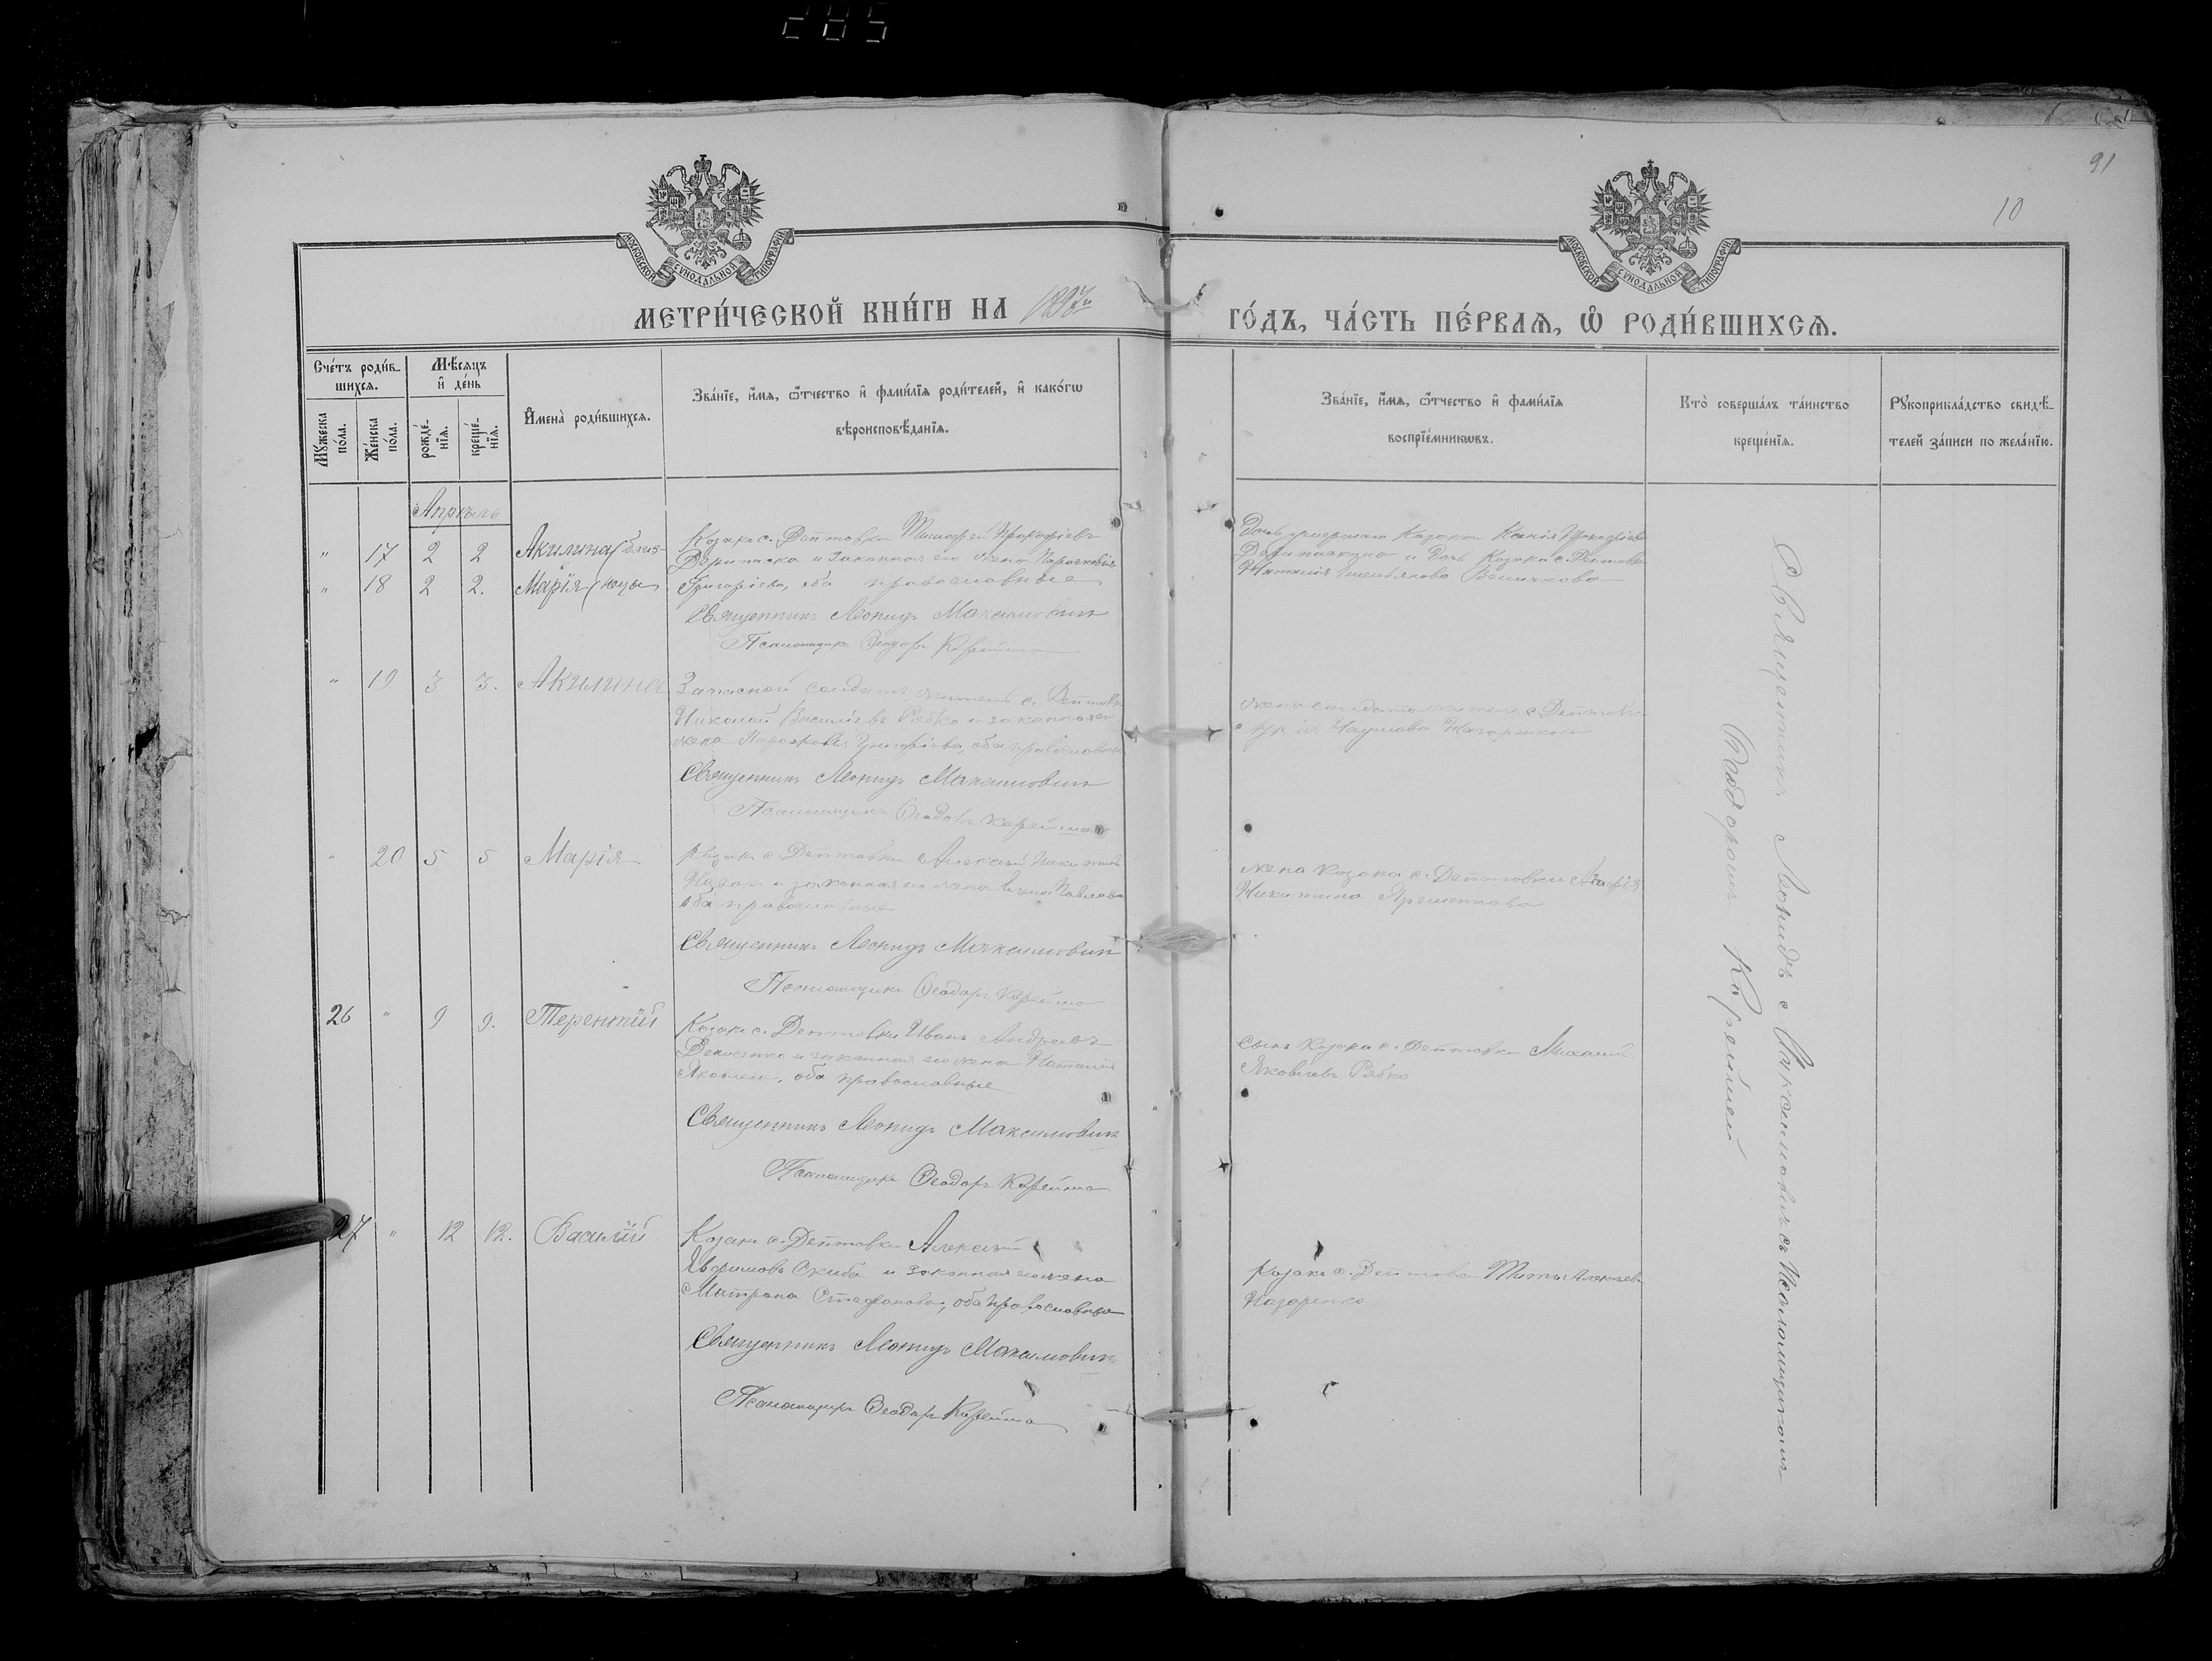 285
91
10
МОСКОВСКОЙ СѴНОДАЛЬНОЙ ТИПОГРАФІИ
МОСКОВСКОЙ СѴНОДАЛЬНОЙ ТИПОГРАФІИ
МЕТРИ́ЧЕСКОЙ КНИ́ГИ НА 1897й
ГО́ДЪ, ЧА́СТЬ ПЕ́РВАѦ, Ѽ РОДИ́ВШИХСѦ.
Сче́тъ роди́в-
шихся.
Мꙋ́жеска по́ла.
Же́нска по́ла.
Мѣ́сяцъ
и҆ де́нь
рожде́-
нїѧ.
креще́-
нїѧ.
И҆мена̀ роди́вшихсѧ.
Зва́нїе, и҆́мѧ, ѻ҆́тчество и҆ фами́лїѧ роди́телей, и҆ како́гѡ
вѣроисповѣ́данїѧ.
Зва́нїе, и҆́мѧ, ѻ҆́тчество и҆ фами́лїѧ
воспрїе́мникѡвъ.
Кто̀ соверша́лъ та́инство
креще́нїѧ.
Рꙋкоприкла́дство свидѣ́-
телей за́писи по жела́нїю.
Апрѣль
" 17 2 2 Акилина (близ-
" 18 2 2. Марія (нецы
Козакъ с. Дептовки Тимофей Прокофіевъ
Дерипаска и законная его жена Параскевія
Григоріева, оба православные
Священникъ Леонидъ Максимовичъ
Псаломщикъ Ѳеодоръ Корейша
Дочь умершаго Козака Ксенія Прокофіева
и дочь Козака с. Дептовки
Наталія Величкова
" 19 3 3. Акилина
Запасной солдатъ житель с. Дептовки
Николай Василіевъ Рябко и законная его
жена Параскевія Григоріева, оба православны
Священникъ Леонидъ Максимовичъ
Псаломщикъ Ѳеодоръ Корейша
жена солдата жителя с. Дептовки
Наумова Назаренкова
" 20 5 5 Марія
Козакъ с. Дептовки Алексѣй Никитинъ
и законная его жена Елена Павлова
оба православные
Священникъ Леонидъ Максимовичъ
Псаломщикъ Ѳеодоръ Корейша
жена Козака с. Дептовки Агафія
Никитина Яременкова
26 " 9 9. Терентій
Козакъ с. Дептовки Иванъ Андреевъ
Денисенко и законная его жена Наталія
Яковлева, оба православные
Священникъ Леонидъ Максимовичъ
Псаломщикъ Ѳеодоръ Корейша
Сынъ Козака с. Дептовки Михаилъ
Яковлевъ Рябко
27 " 12 12. Василій
Козакъ с. Дептовки Алексѣй
Евфимовъ Скиба и законная его жена
Матрона Стефанова, оба православные
Священникъ Леонидъ Максимовичъ
Псаломщикъ Ѳеодоръ Корейша
Козакъ с. Дептовки Титъ Алексѣевъ
Назаренко
Священникъ Леонидъ Максимовичъ съ Псаломщикомъ
Ѳеодоромъ Корейшей